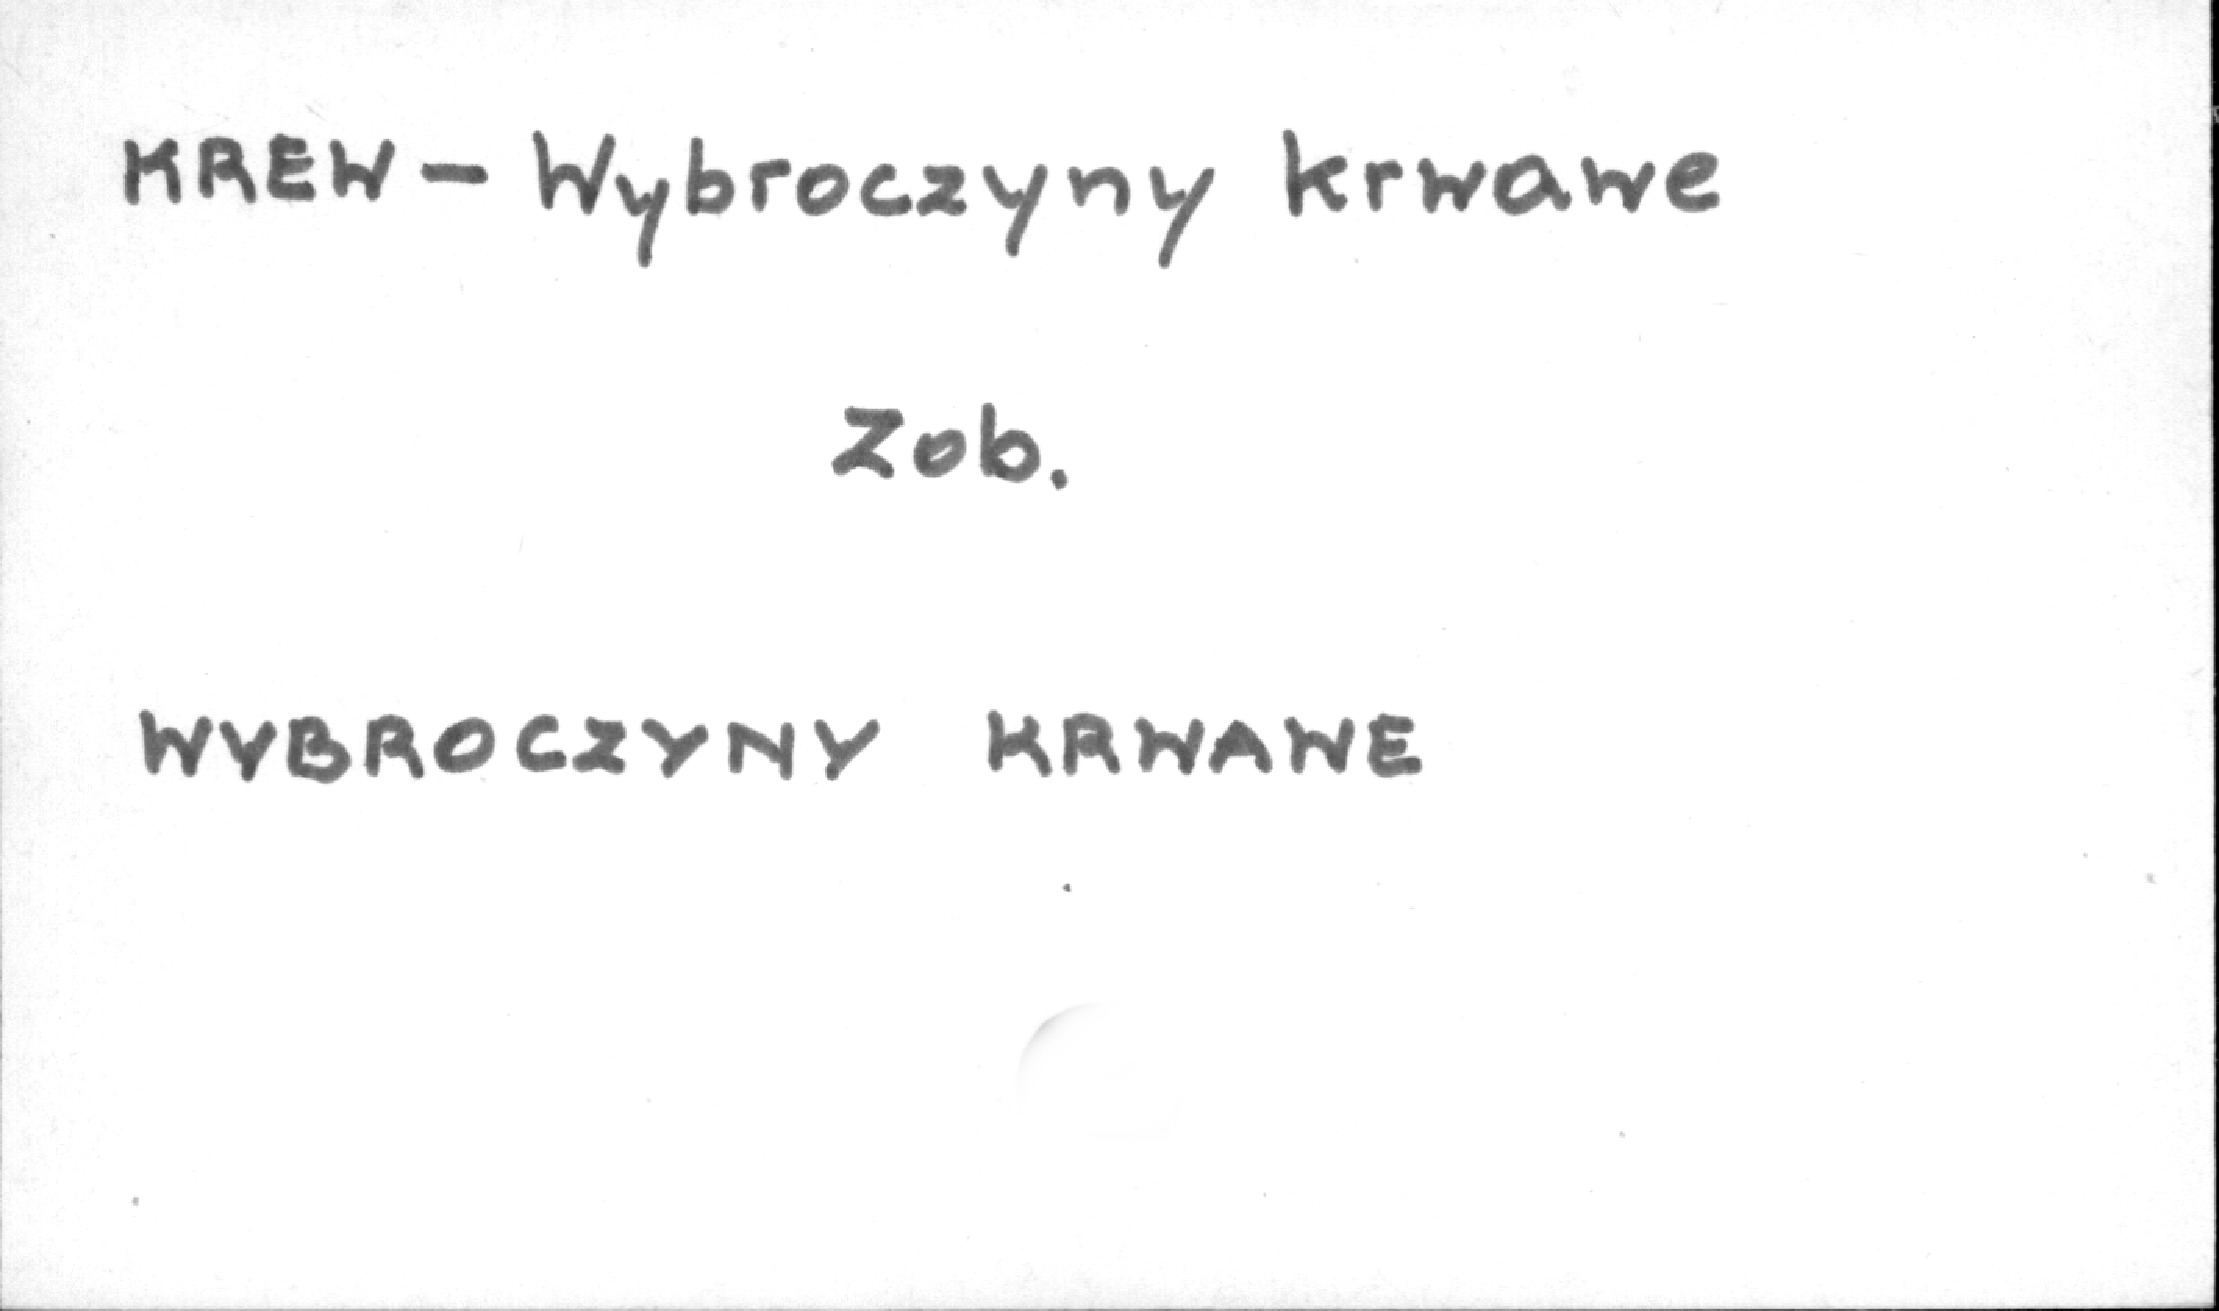 KREW - Wybroczyny krwawe
Zob.
WYBROCZYNY KRWAWE